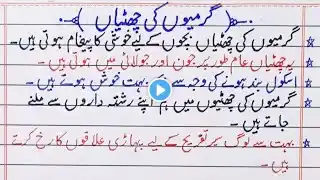 گرمیوں کی چھٹیاں
گرمیوں کی چھٹیاں بچوں کے لیے خوشی کا پیغام ہوتی ہیں۔
یہ چھٹیاں عام طور پر جون اور جولائی میں ہوتی ہیں۔
اسکول بند ہونے کی وجہ سے بچے بہت خوش ہوتے ہیں۔
گرمیوں کی چھٹیوں میں ہم اپنے رشتہ داروں سے ملنے
جاتے ہیں۔
بہت سے لوگ سیر تفریح کے لیے پہاڑی علاقوں کا رخ کرتے
ہیں۔